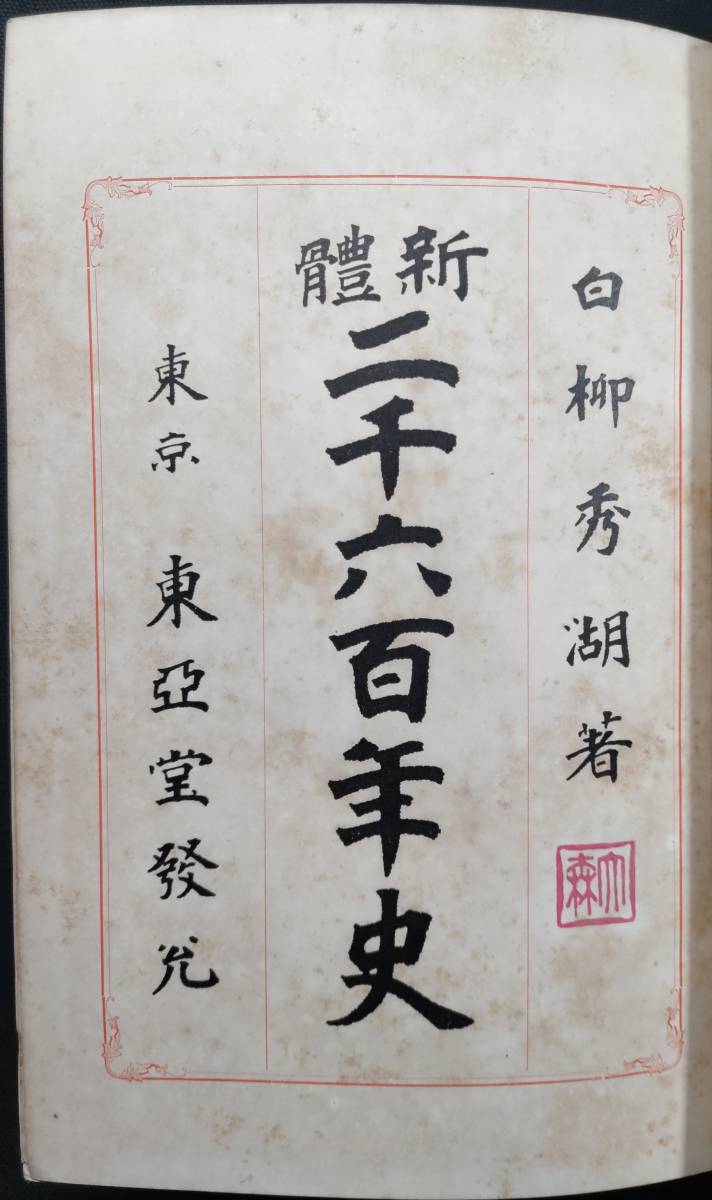 白柳秀湖著
新體
二千六百年史
東京 東亞堂發兌
大森